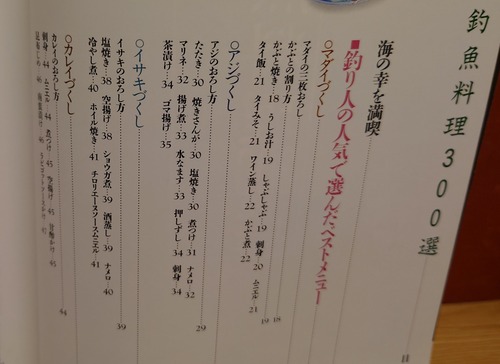 釣魚料理300選
海の幸を満喫
■釣り人の人気で選んだベストメニュー 11
○マダイづくし
マダイの三枚おろし 18
かぶとの割り方 19
かぶと焼き…18 うしお汁…19 しゃぶしゃぶ…19 刺身…20 ムニエル…21
タイ飯…21 タイみそ…21 ワイン蒸し…22 かぶと煮…22
○アジづくし
アジのおろし方 29
たたき…30 焼きさんが…30 塩焼き…30 煮つけ…31 ナメロ…32
マリネ…32 揚げ煮…33 水なます…33 押しずし…34 刺身…34
茶漬け…34 ゴマ揚げ…35
○イサキづくし
イサキのおろし方 39
塩焼き…38 空揚げ…38 ショウガ煮…39 酒蒸し…39 ナメロ…40
冷やし煮…40 ホイル焼き…41 チロリエーヌソースムニエル…41
○カレイづくし
カレイのおろし方 44
刺身…44 ムニエル…44 煮つけ…45 空揚げ…45